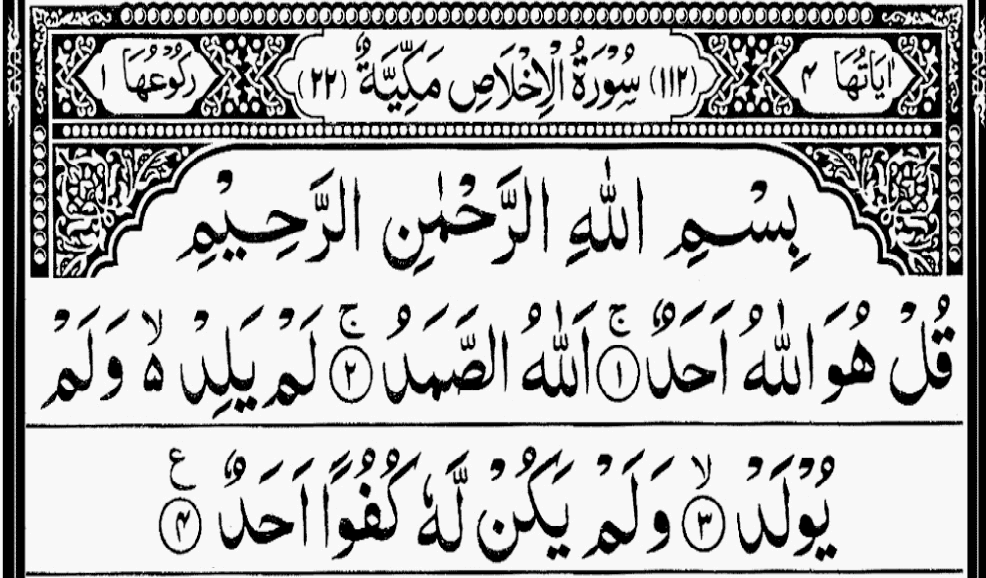 اٰيَاتُهَا ۴ (۱۱۲) سُوْرَةُ الْاِخْلَاصِ مَكِّيَّةٌ (۲۲) رُكُوْعُهَا ۱
بِسْمِ اللّٰهِ الرَّحْمٰنِ الرَّحِيْمِ
قُلْ هُوَ اللّٰهُ اَحَدٌ ۚ‏ ﴿۱﴾ اَللّٰهُ الصَّمَدُ‌ ۚ‏ ﴿۲﴾ لَمْ يَلِدْ ۙ ۵ وَلَمْ
يُوْلَدْ ۙ‏ ﴿۳﴾ وَلَمْ يَكُنْ لَّهٗ كُفُوًا اَحَدٌ ع ﴿۴﴾